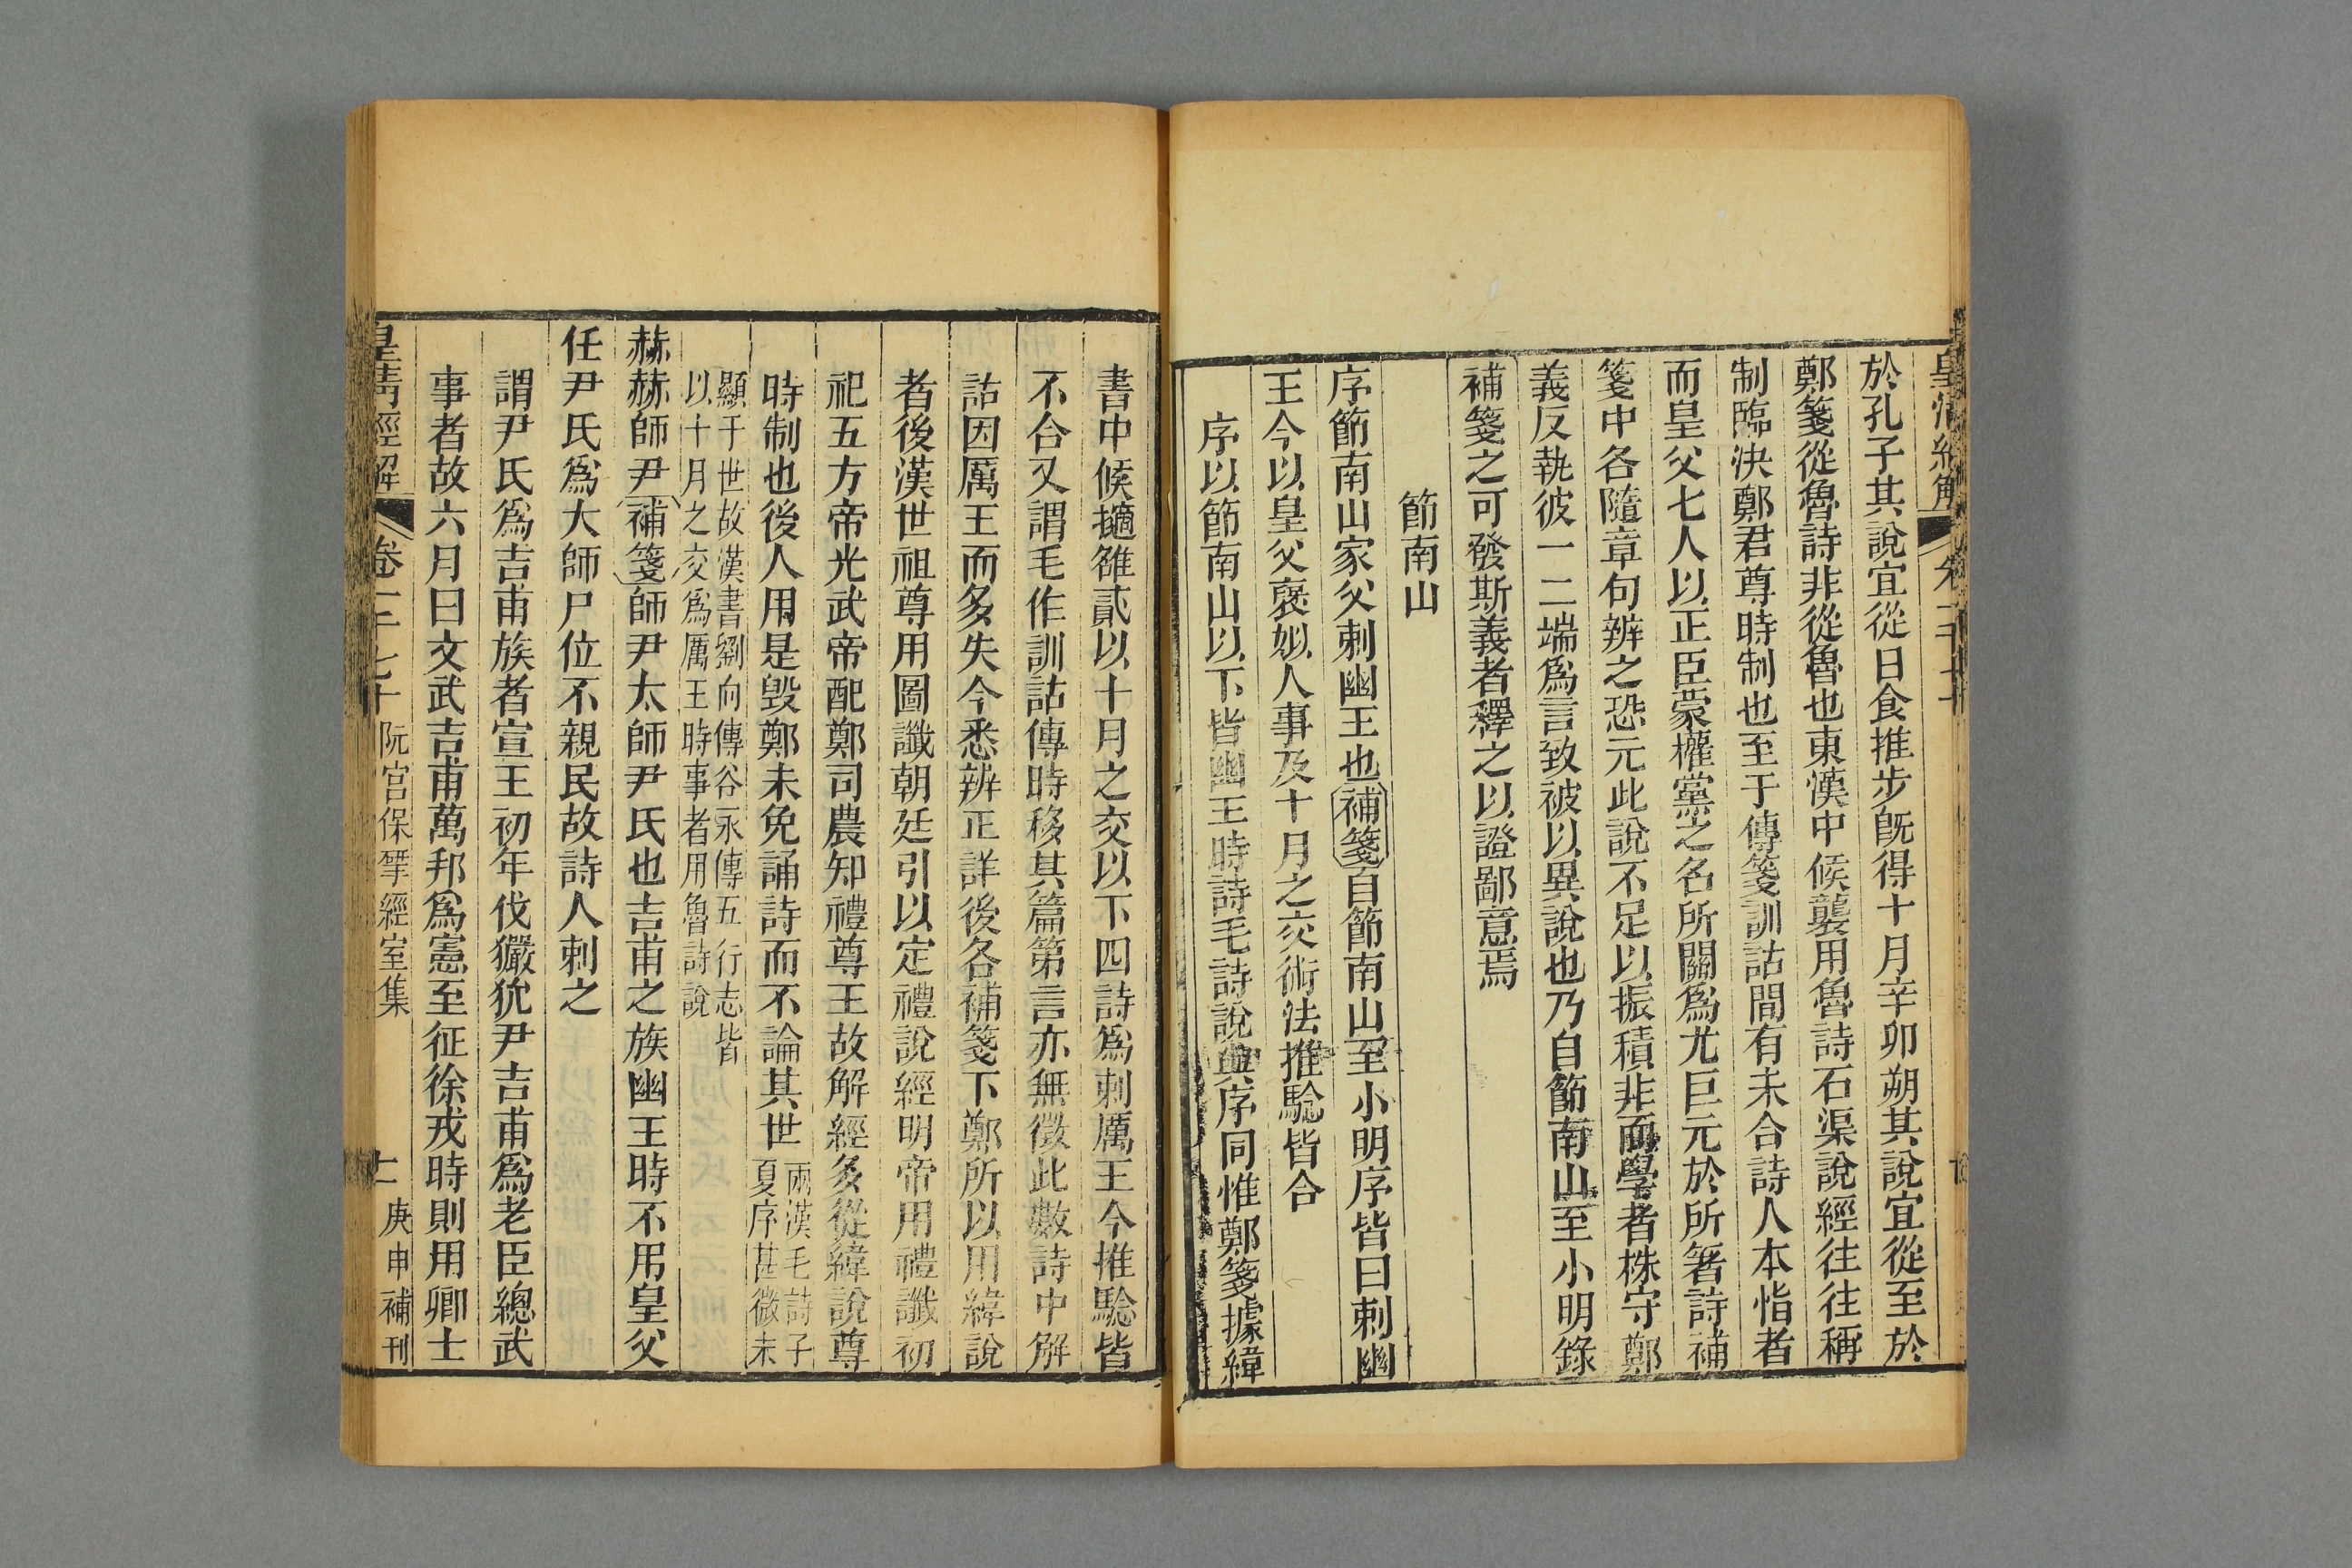 於孔子其說宜從日食推步旣得十月辛卯朔其說宜從至於
鄭箋從魯詩非從魯也東漢中候襲用魯詩石渠說經往往稱
制臨決鄭君尊時制也至于傳箋訓詁間有未合詩人本恉者
而皇父七人以正臣蒙權黨之名所關爲尤巨元於所箸詩補
箋中各隨章句辨之恐元此說不足以振積非而學者株守鄭
義反執彼一二端爲言致被以異說也乃自節南山至小明錄
補箋之可發斯義者繹之以證鄙意焉
節南山
序節南山家父刺幽王也補箋自節南山至小明序皆曰刺幽
王今以皇父褒姒人事及十月之交術法推騐皆合
序以節南山以下皆幽王時詩毛詩說與序同惟鄭箋據緯
書中候擿雒貳以十月之交以下四詩爲刺厲王今推騐皆
不合又謂毛作訓詁傳時移其篇第言亦無徵此數詩中解
詁因厲王而多失今悉辨正詳後各補箋下鄭所以用緯說
者後漢世祖尊用圖讖朝廷引以定禮說經明帝用禮讖初
祀五方帝光武帝配鄭司農知禮尊王故解經多從緯說尊
時制也後人用是毀鄭未免誦詩而不論其世兩漢毛詩子
夏序甚微未
顯于世故漢書劉向傳谷永傳五行志皆
以十月之交爲厲王時事者用魯詩說
赫赫師尹補箋師尹太師尹氏也吉甫之族幽王時不用皇父
任尹氏爲大師尸位不親民故詩人刺之
謂尹氏爲吉甫族者宣王初年伐玁狁尹吉甫爲老臣總武
事者故六月曰文武吉甫萬邦爲憲至征徐戎時則用卿士
皇清經解 卷一千七十 阮宮保揅經室集 庚申補刊